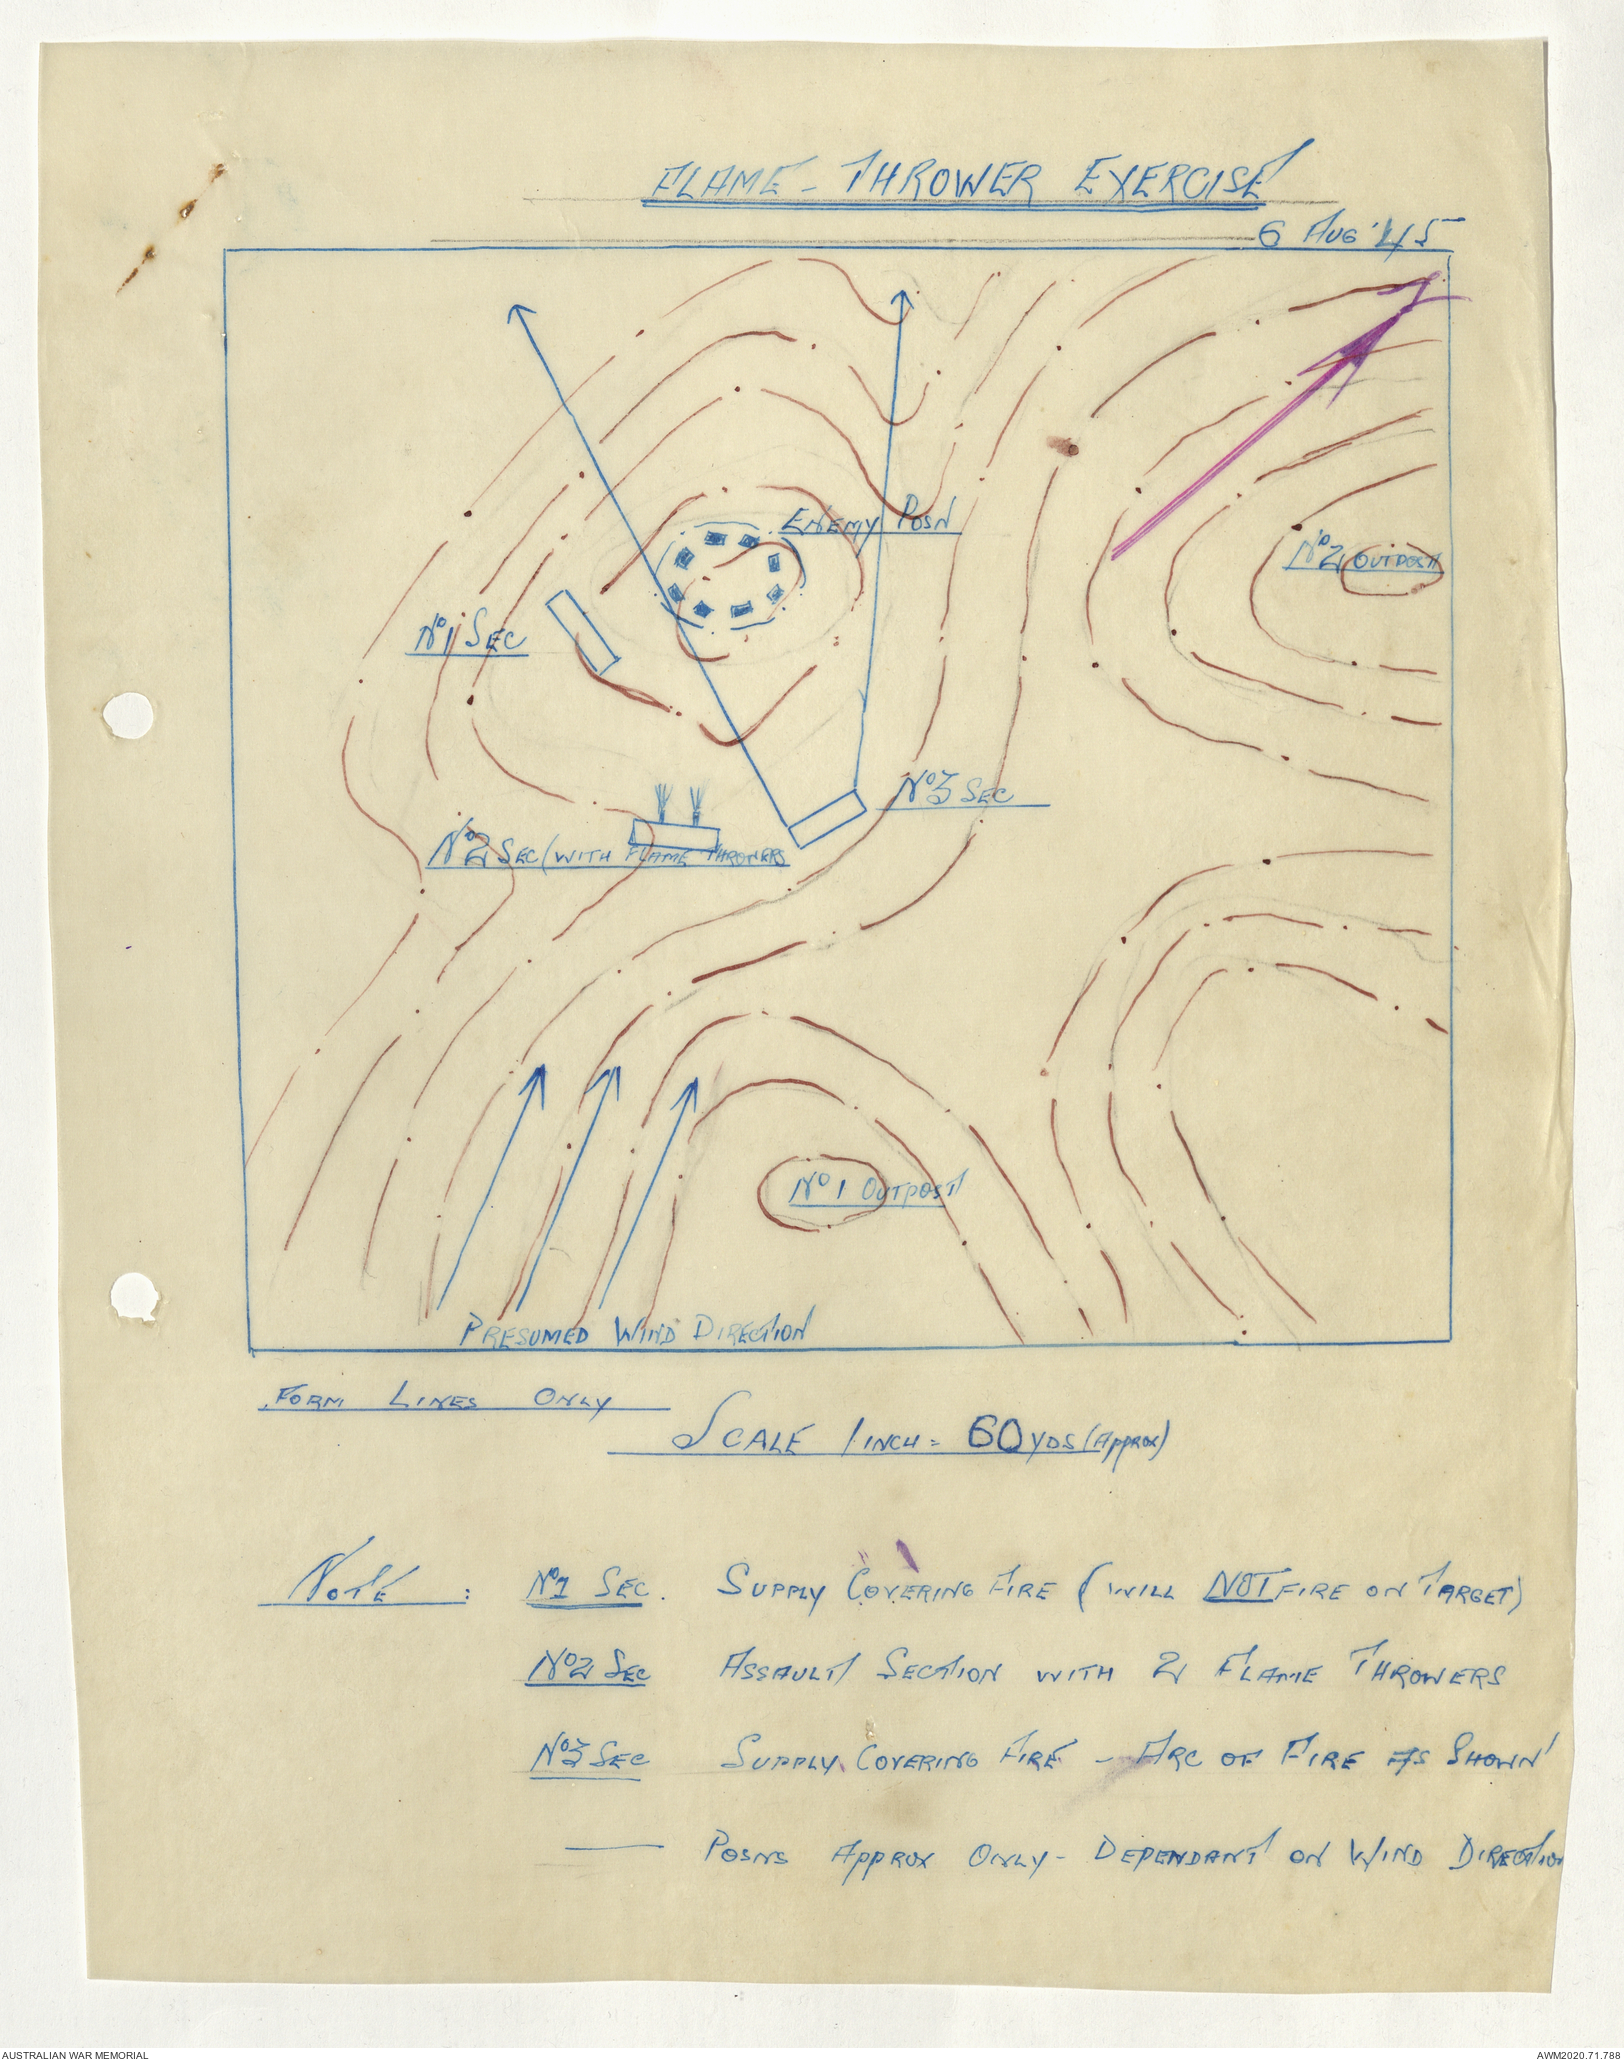 FLAME-THROWER EXERCISE
6 AUG '45
ENEMY POSN
Nº2 OUTPOST
Nº1 SEC
Nº3 SEC
Nº2 SEC (WITH FLAME THROWERS
Nº1 OUTPOST
PRESUMED WIND DIRECTION
FORM LINES ONLY
SCALE 1 INCH = 60 YDS (APPROX)
NOTE : Nº1 SEC. SUPPLY COVERING FIRE (WILL NOT FIRE ON TARGET)
Nº2 SEC ASSAULT SECTION WITH 2 FLAME THROWERS
Nº3 SEC SUPPLY COVERING FIRE - ARC OF FIRE AS SHOWN
POSNS APPROX ONLY - DEPENDANT ON WIND DIRECTION
AUSTRALIAN WAR MEMORIAL
AWM2020.71.788